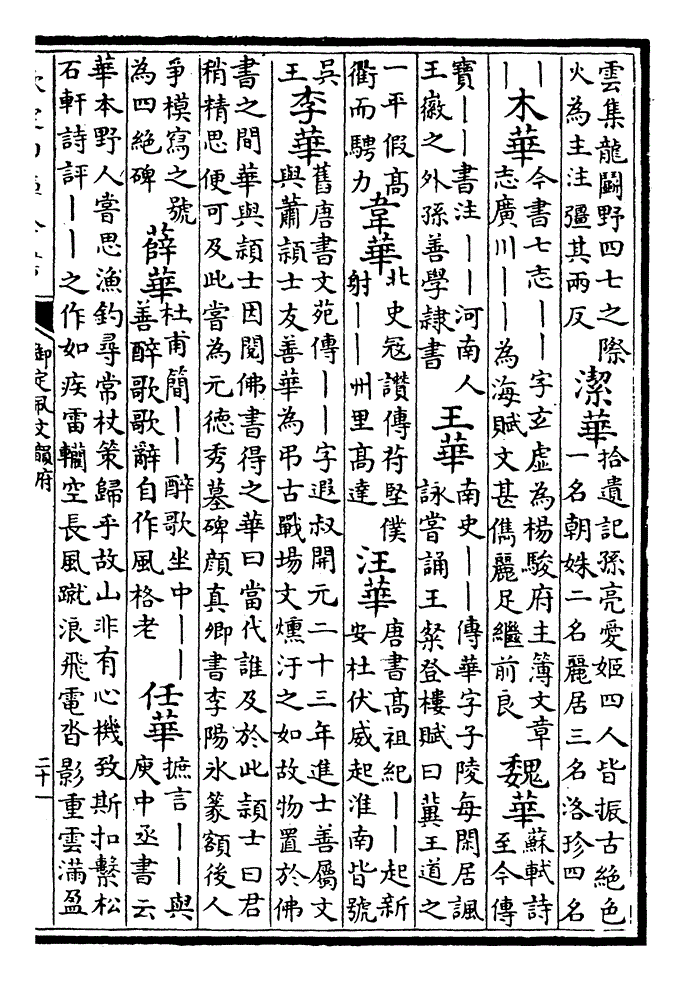 雲集龍鬬野四七之際
火為主注彊其兩反
潔華
拾遺記孫亮愛姬四人皆振古絕色
一名朝姝二名麗居三名洛珍四名
｜
｜
木華
今書七志｜｜字玄虛為楊駿府主簿文章
志廣川｜｜為海賦文甚儁麗足繼前良
魏華
蘇軾詩
至今傳
寶｜｜書注｜｜河南人
王徽之外孫善學隸書
王華
南史｜｜傳華字子陵每閑居諷
詠嘗誦王粲登樓賦曰冀王道之
一平假高
衢而騁力
韋華
北史冦讚傳苻堅僕
射｜｜州里高達
汪華
唐書高祖紀｜｜起新
安杜伏威起淮南皆號
吳
王
李華
舊唐書文苑傳｜｜字遐叔開元二十三年進士善屬文
與蕭頴士友善華為弔古戰場文燻汙之如故物置於佛
書之間華與頴士因閱佛書得之華曰當代誰及於此頴士曰君
稍精思便可及此嘗為元德秀墓碑顏真卿書李陽冰篆額後人
爭模寫之號
為四絕碑
薛華
杜甫簡｜｜醉歌坐中｜｜
善醉歌歌辭自作風格老
任華
摭言｜｜與
庾中丞書云
華本野人嘗思漁釣尋常杖策歸乎故山非有心機致斯扣繫松
石軒詩評｜｜之作如疾雷轣空長風蹴浪飛電沓影重雲滿盈
御定佩文韻府
二十一